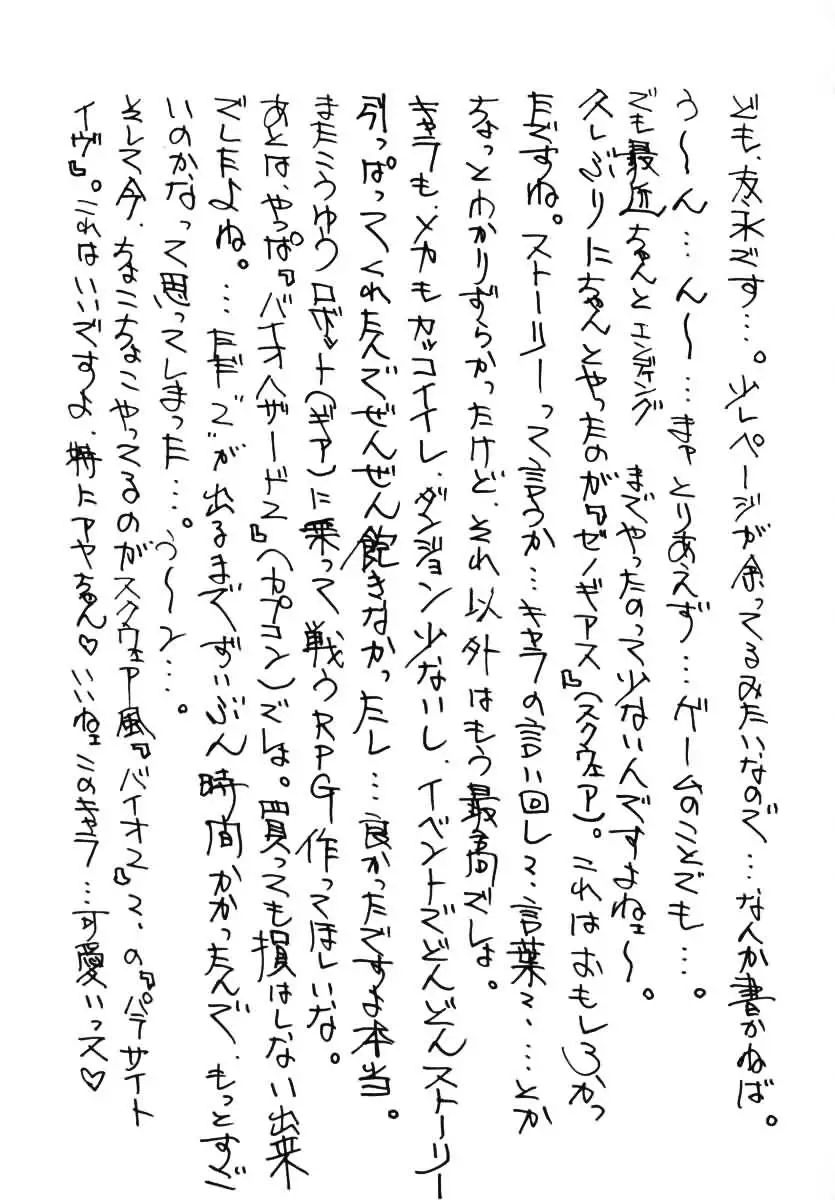 ども、友永です…。少しページが余ってるみたいなので…なんか書かねば。
う〜ん…ん〜…まァとりあえず…ゲームのことでも…。
でも最近ちゃんとエンディングまでやったのって少ないんですよねェ〜。
久しぶりにちゃんとやったのが『ゼノギアス』(スクウェア)。これはおもしろかっ
たですね。ストーリーって言うか…キャラの言い回しで、言葉で、…とか
ちょっとわかりずらかったけど、それ以外はもう最高でしょ。
キャラも、メカもカッコイイし、ダンジョン少ないし、イベントでどんどんストーリー
引っぱってくれたんでぜんぜん飽きなかったし…良かったですよ本当。
またこうゆうロボット(ギア)に乗って戦うRPG作ってほしいな。
あとは、やっぱ『バイオハザード2』(カプコン)でしょ。買っても損はしない出来
でしたよね。…ただ“2”が出るまでずいぶん時間かかったんで、もっとすご
いのかなって思ってしまった…。う〜ン…。
そして今、ちょこちょこやってるのがスクウェア風『バイオ2』で、の『パラサイト
イヴ』。これはいいですよ、特にアヤちゃん♡いいねェこのキャラ…可愛いっス♡